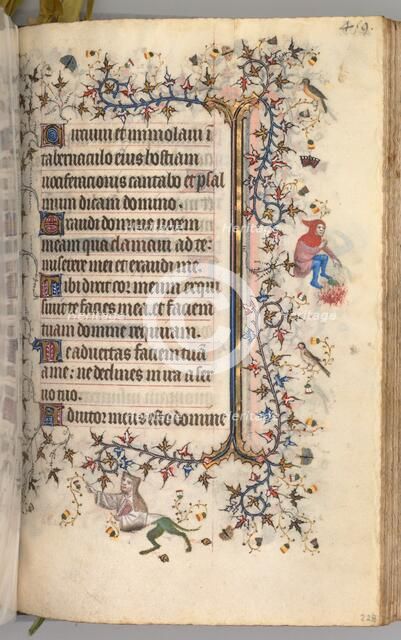 459.
Circuivi et immolavi i
tabernaculo eius hostiam
vociferacionis cantabo et psal
mum dicam domino.
Exaudi domine vocem
meam qua clamavi ad te
miserere mei et exaudi me.
Tibi dixit cor meum exqui
sivit te facies mea et faciem
tuam domine requiram.
Ne advertas faciem tuā
a me: ne declines in ira a ser
vo tuo.
Adiutor meus esto domine
228